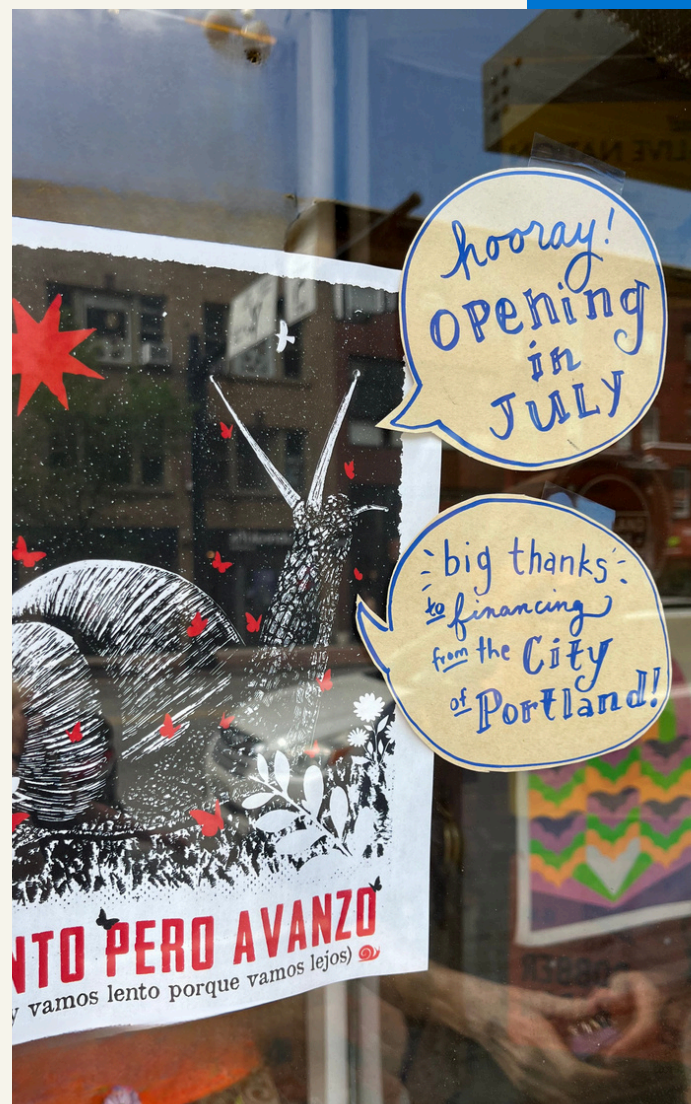 hooray!
OPENING
in
JULY
big thanks
to financing
from the City
of Portland!
NTO PERO AVANZO
y vamos lento porque vamos lejos)
LIVE NATION